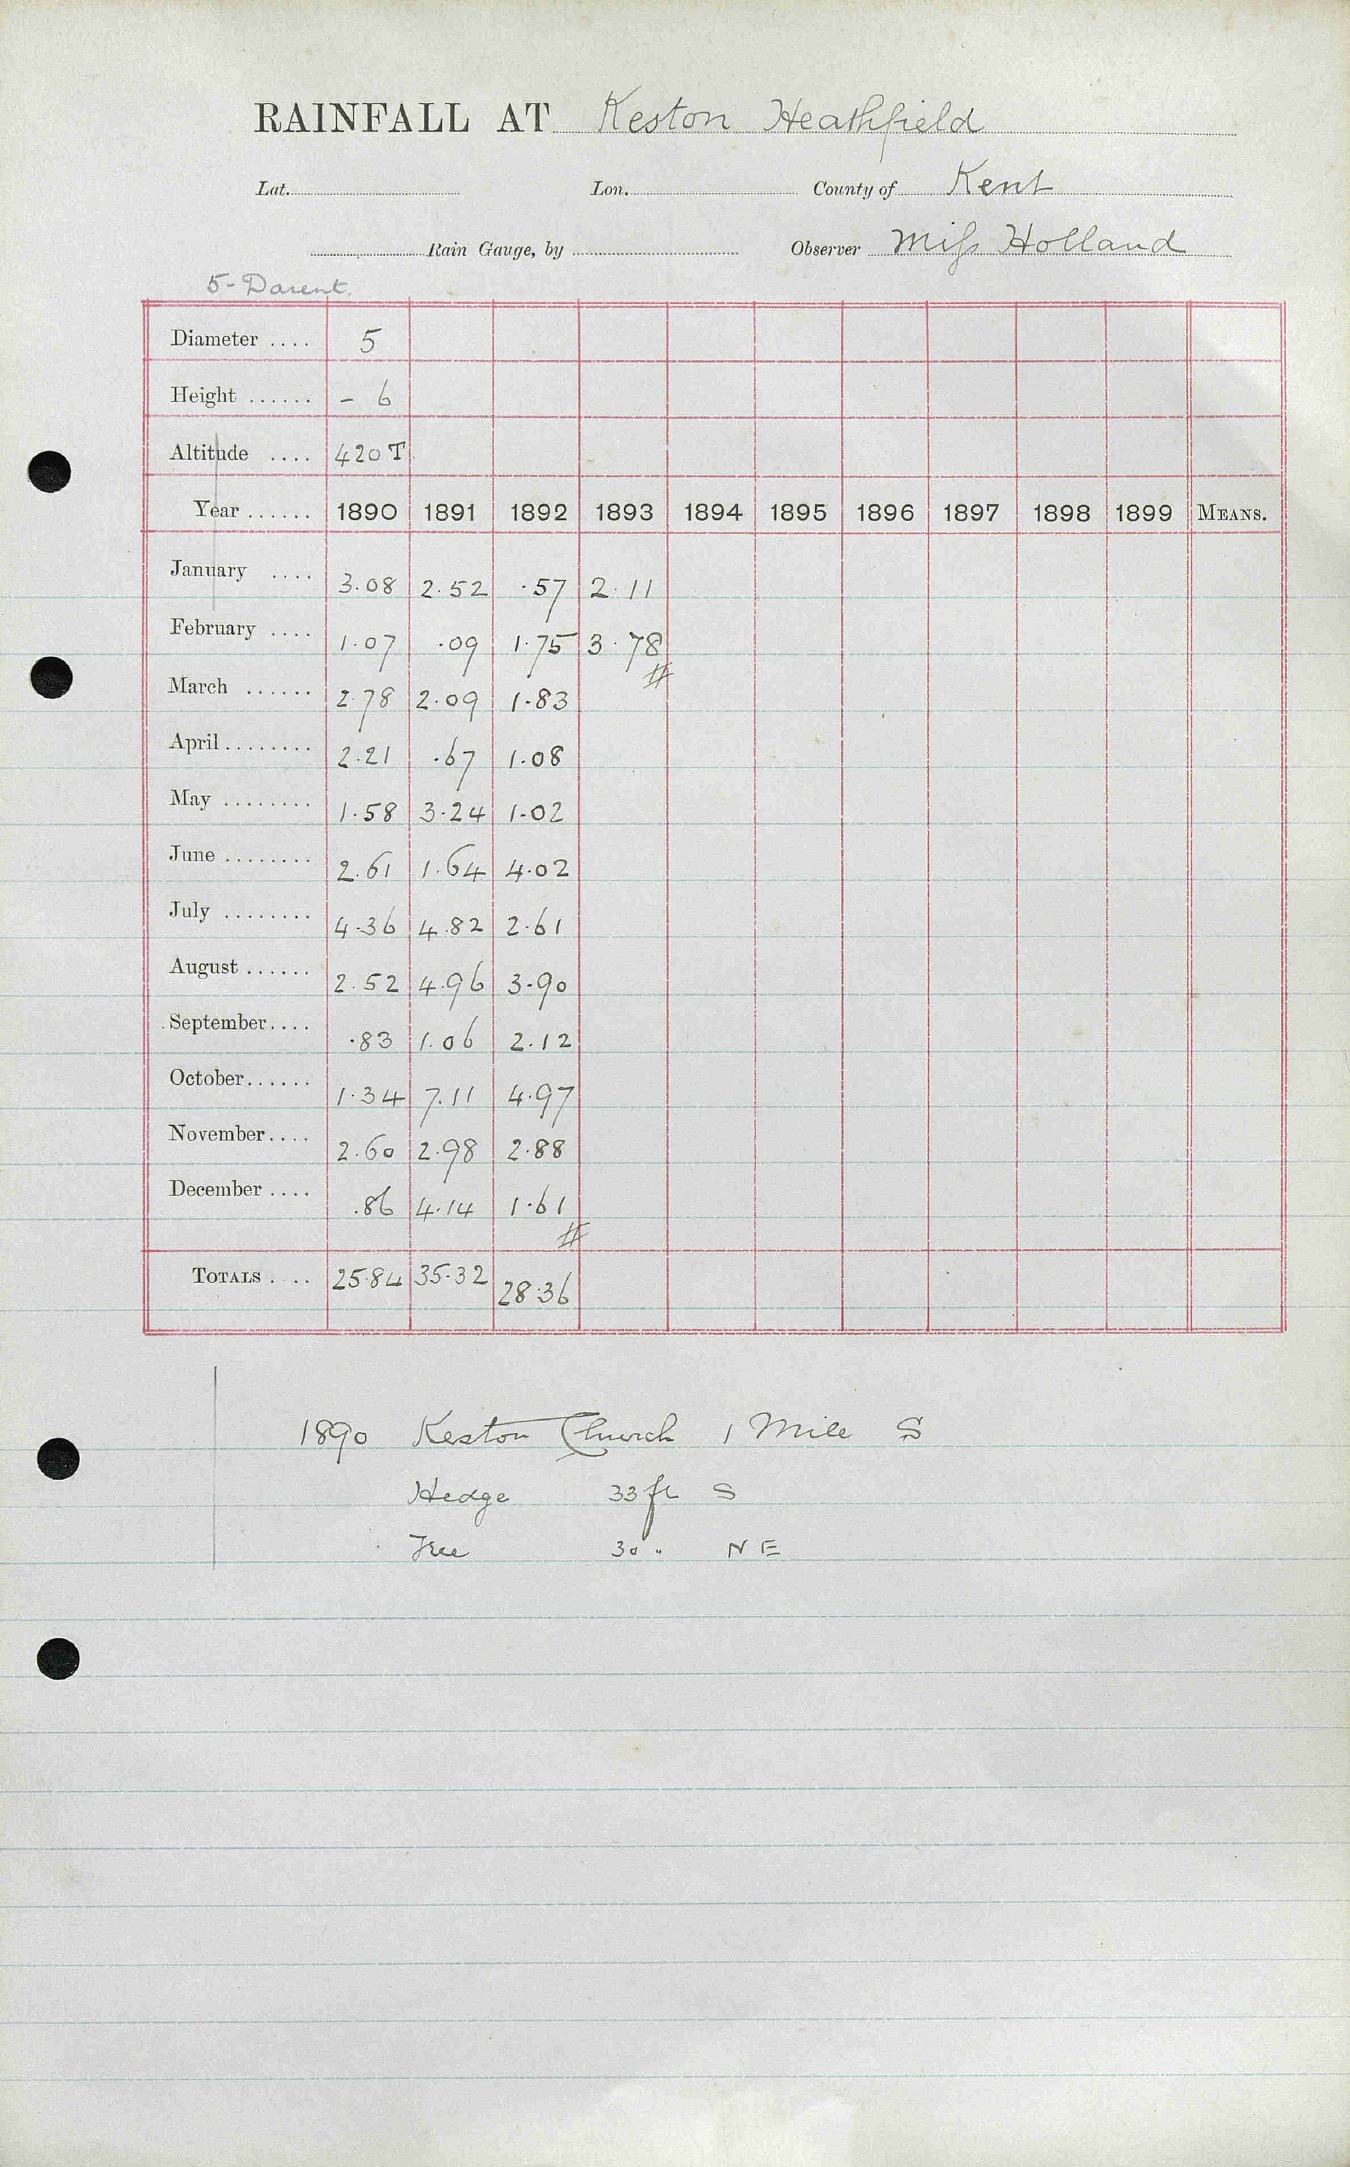 RAINFALL AT Keston Heathfield
Lat. Lon. County of Kent
Rain Gauge, by Observer Miſs Holland
5-Darent.
Diameter .... 5
Height ...... - 6
Altitude .... 420 T
Year ...... 1890 1891 1892 1893 1894 1895 1896 1897 1898 1899 MEANS.
January .... 3.08 2.52 .57 2.11
February .... 1.07 .09 1.75 3.78
#
March ...... 2.78 2.09 1.83
April ........ 2.21 .67 1.08
May ........ 1.58 3.24 1.02
June ........ 2.61 1.64 4.02
July ........ 4.36 4.82 2.61
August ...... 2.52 4.96 3.90
September .... .83 1.06 2.12
October ...... 1.34 7.11 4.97
November .... 2.60 2.98 2.88
December .... .86 4.14 1.61
#
TOTALS .... 25.84 35.32 28.36
1890 Keston Church 1 Mile S
Hedge 33 ft S
Tree 30 " N E